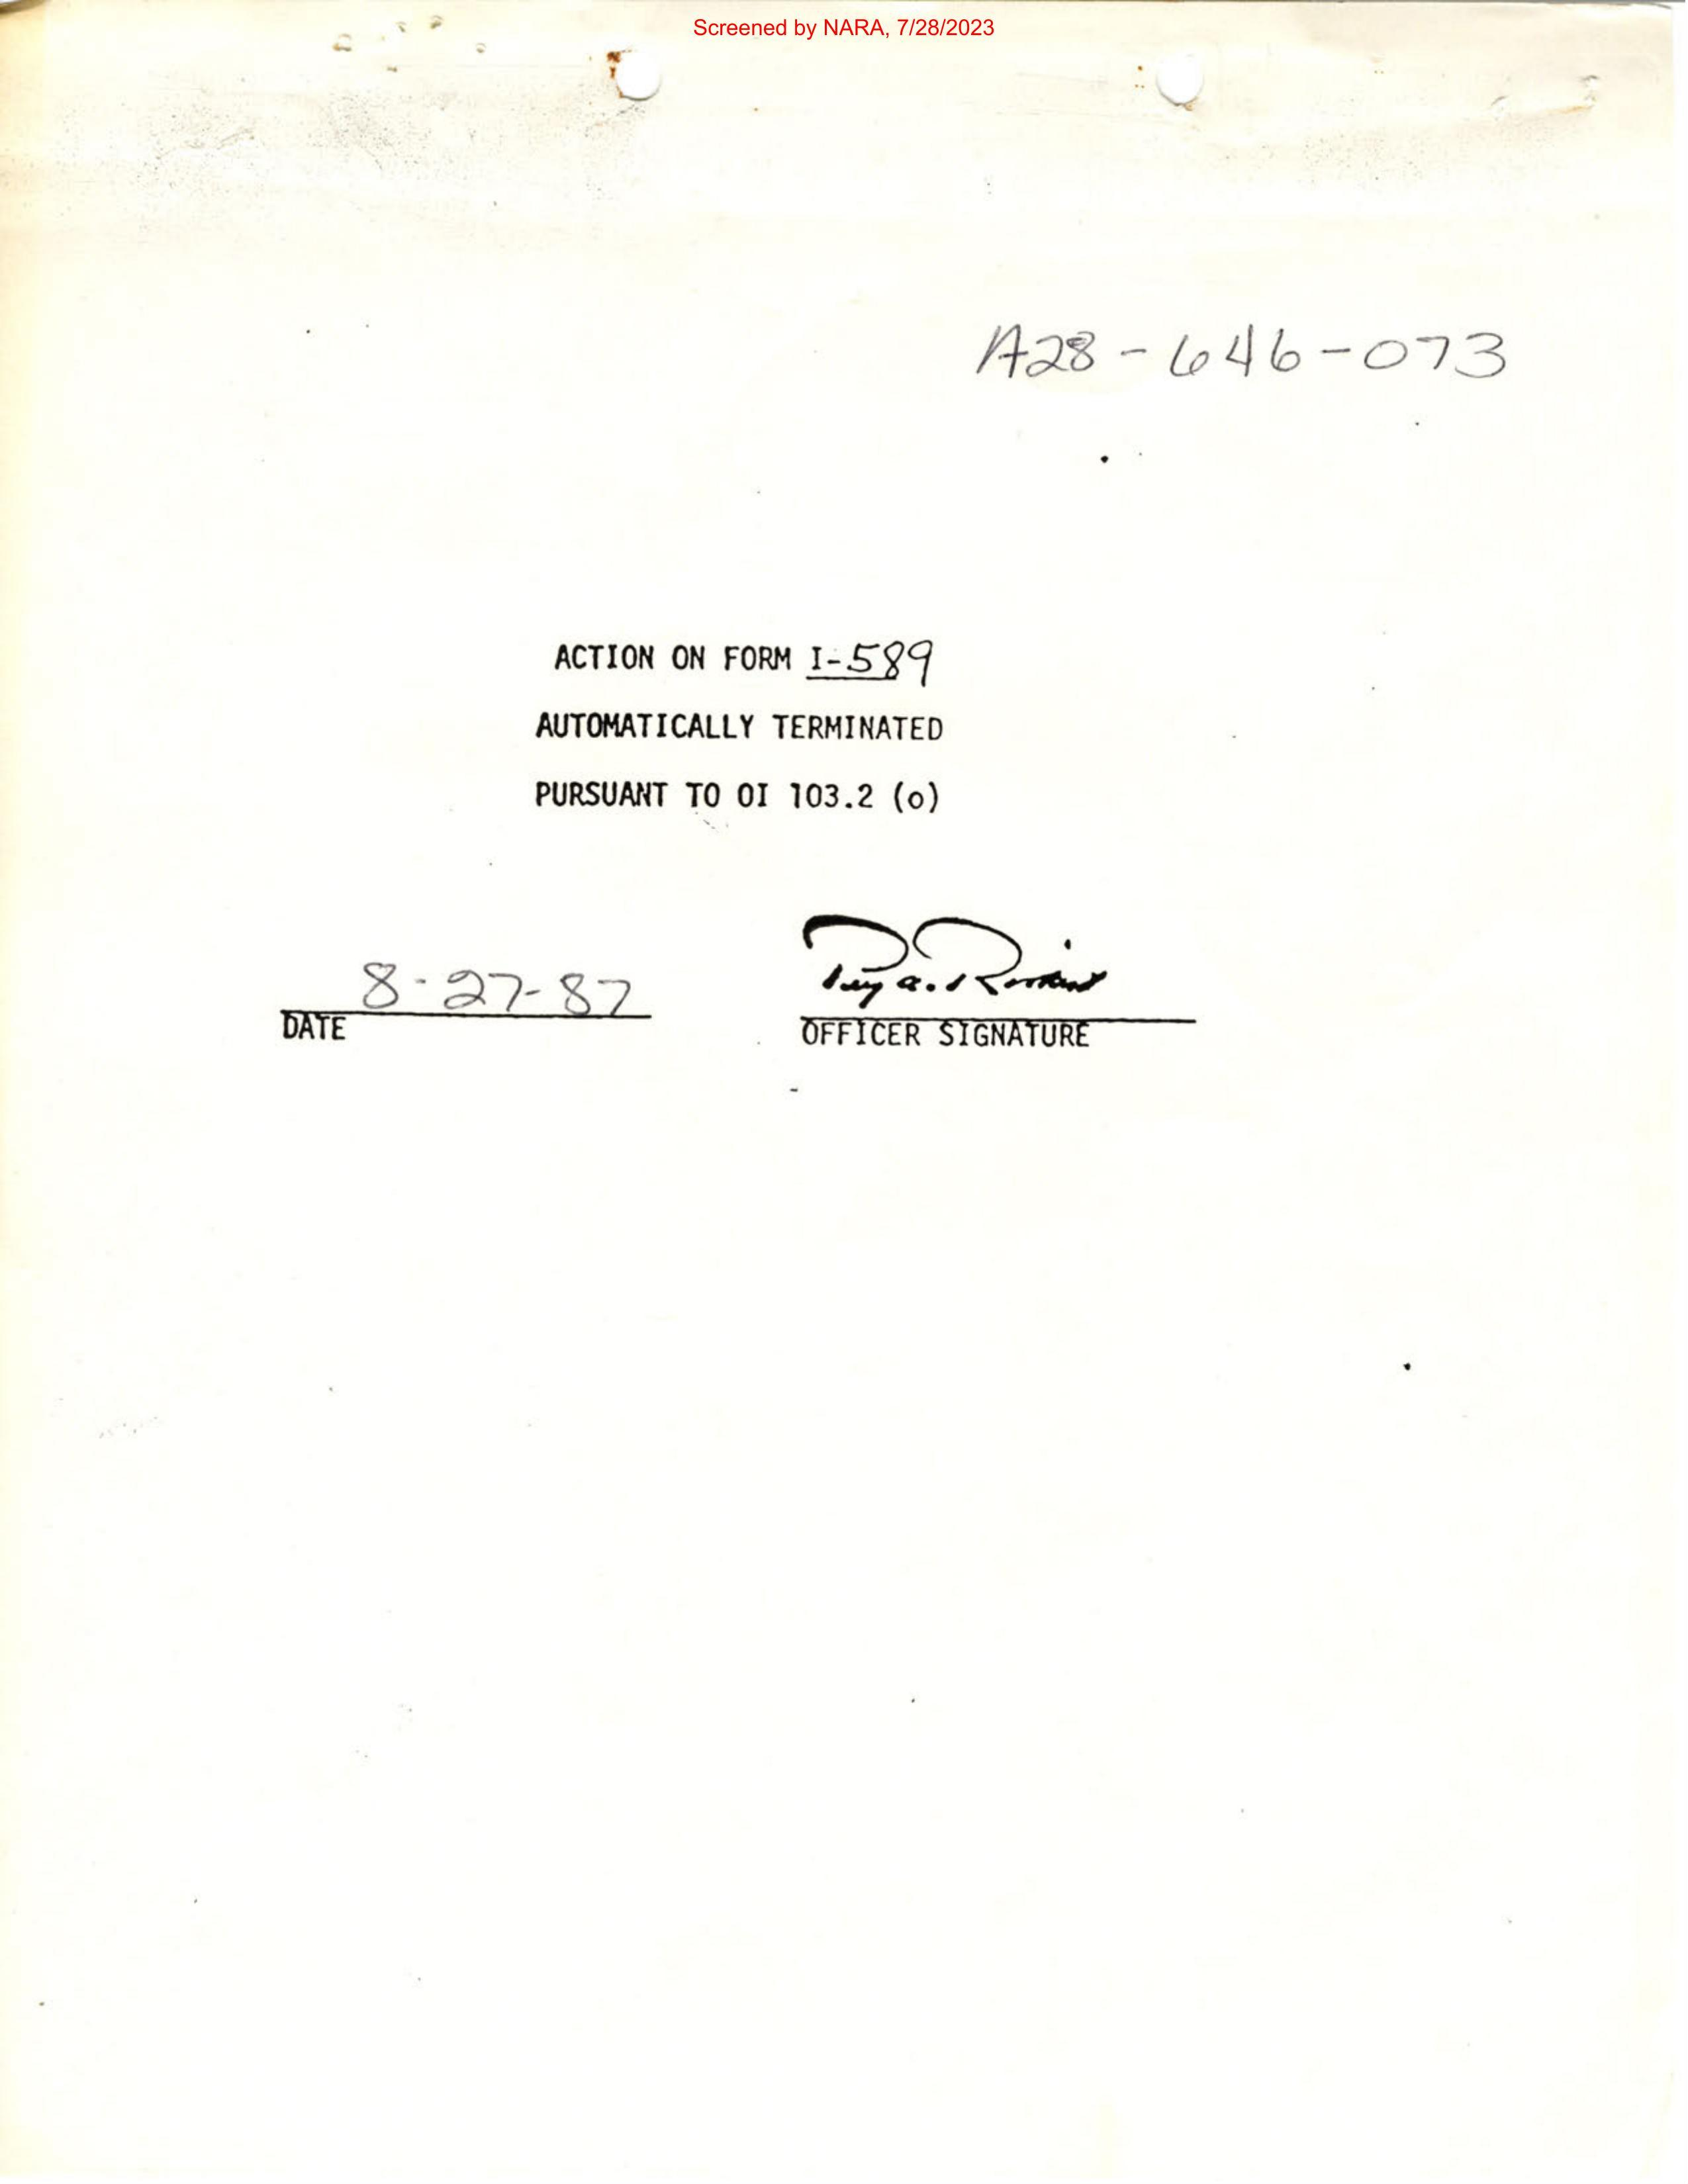 Screened by NARA, 7/28/2023
A28-646-073
ACTION ON FORM I-589
AUTOMATICALLY TERMINATED
PURSUANT TO OI 103.2 (o)
8-27-87
DATE
OFFICER SIGNATURE